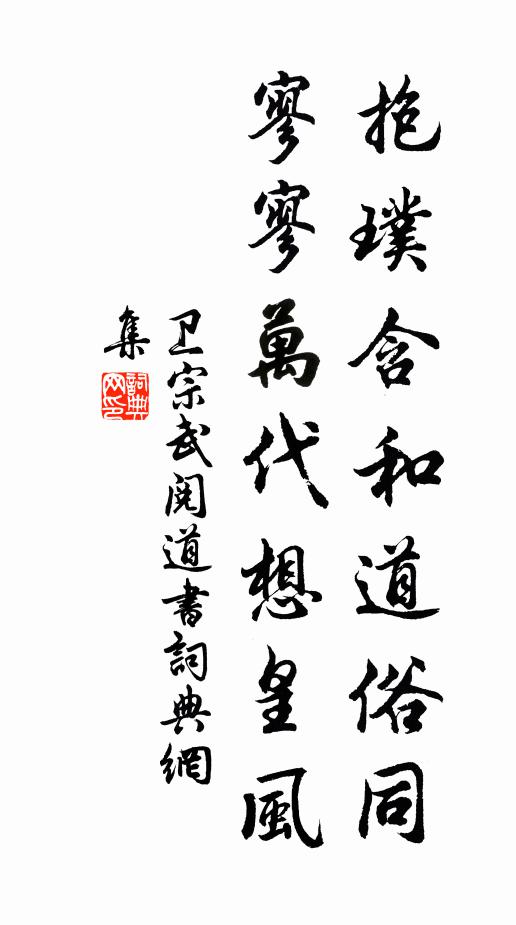 抱璞含和道俗同
寥寥萬代想皇風
卫宗武阅道書詞典網
集
詞典
网印